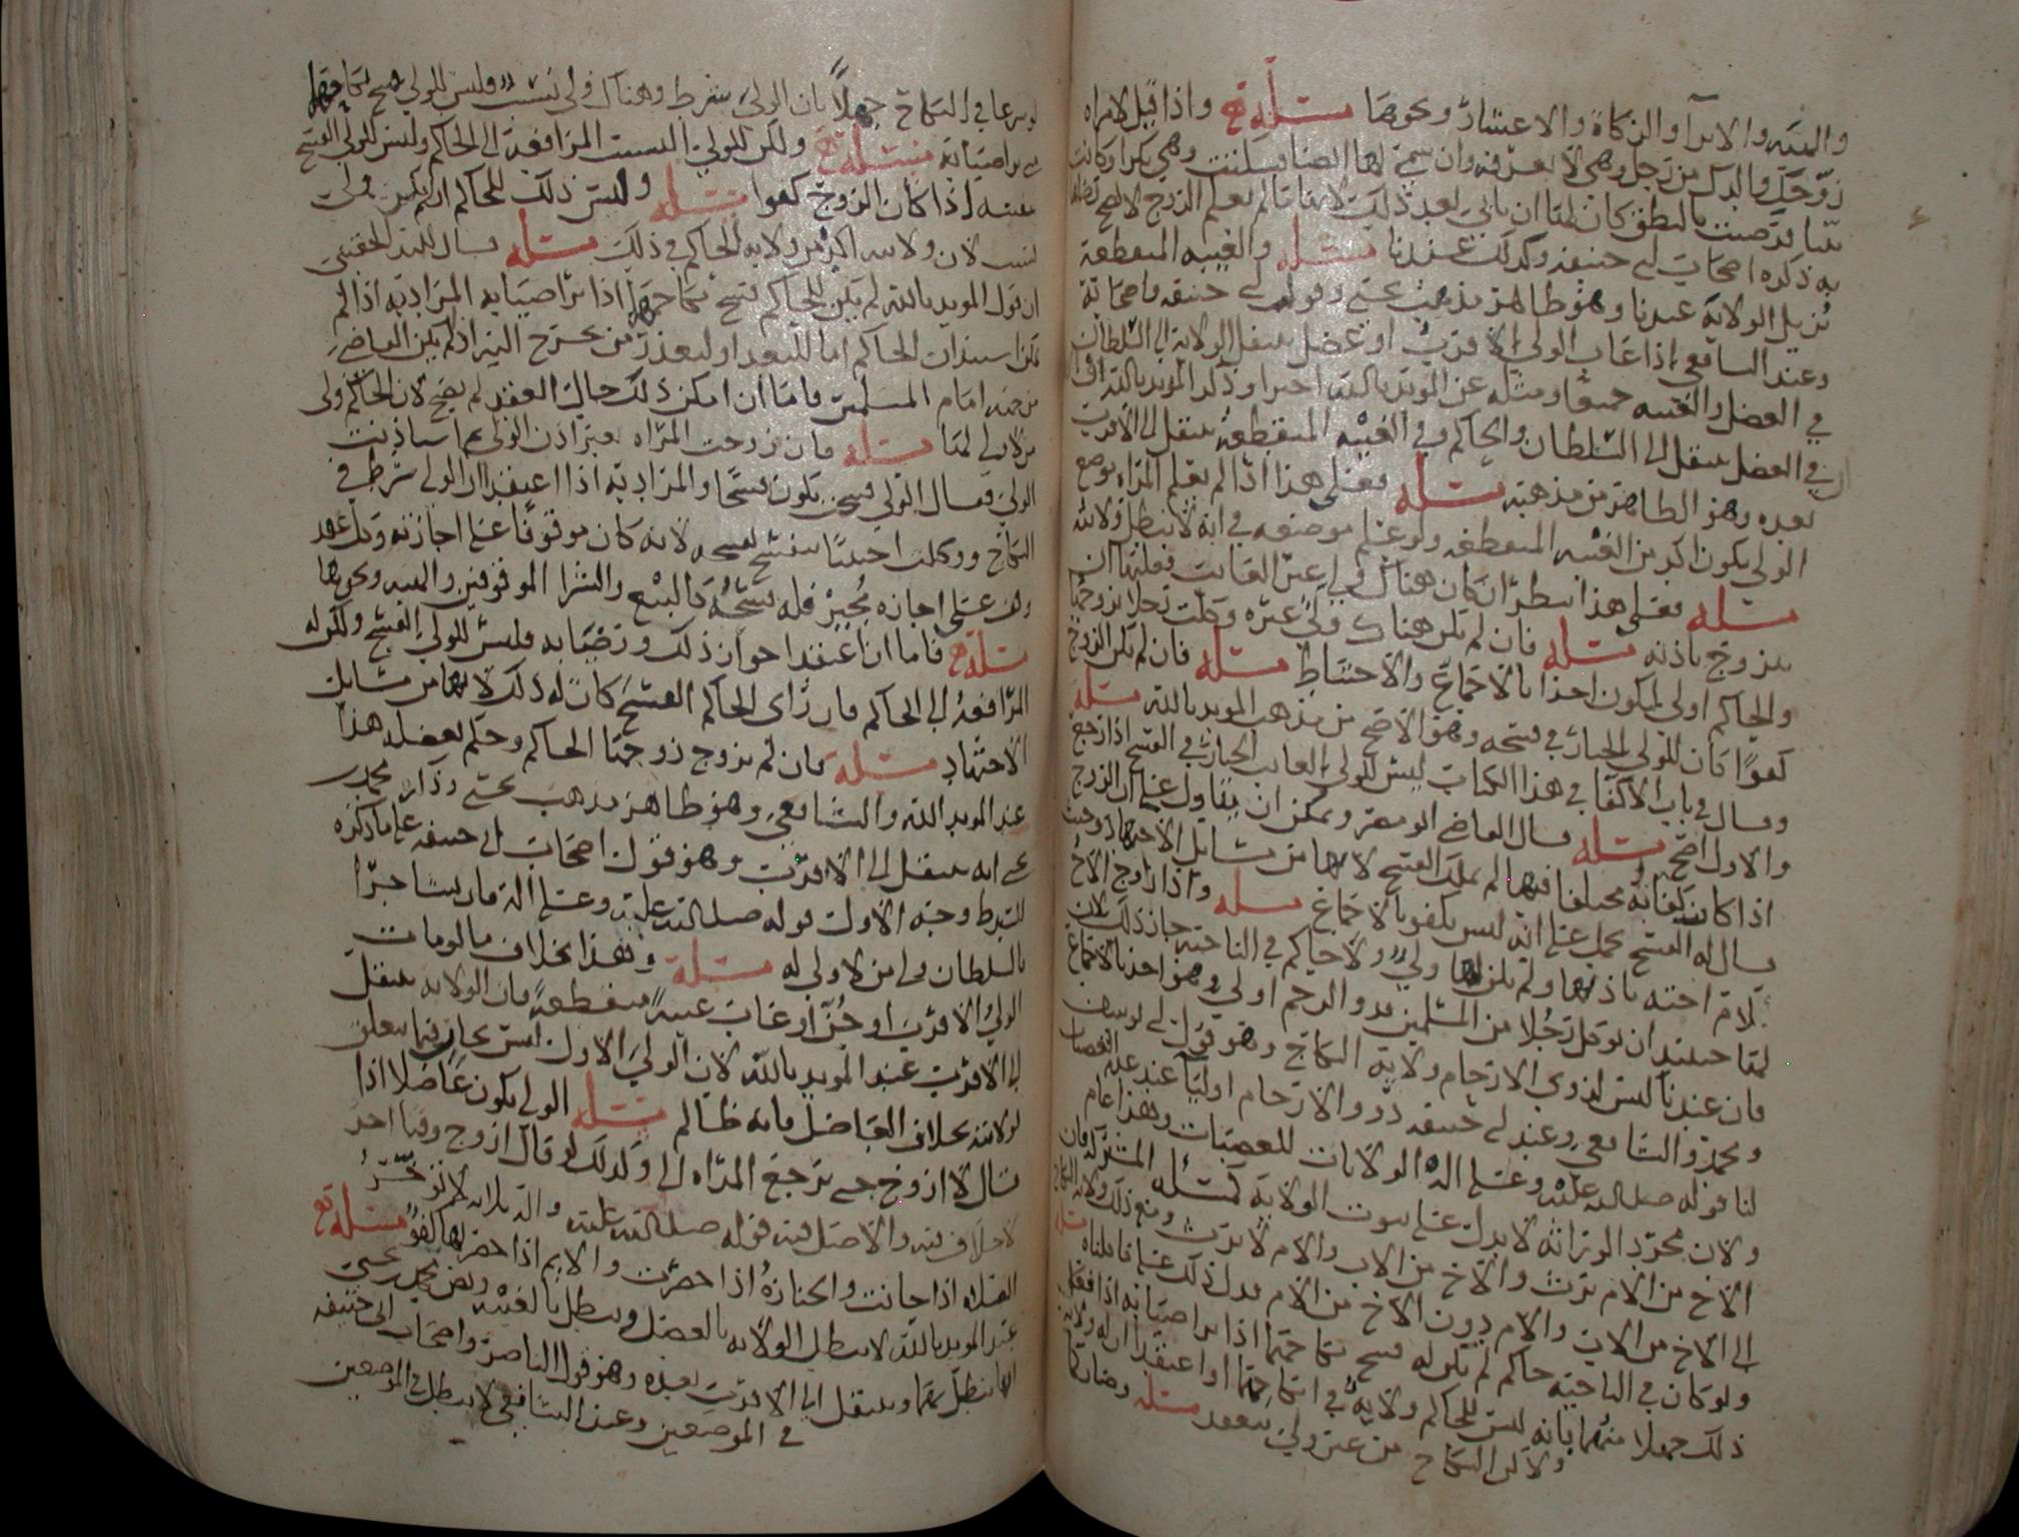 والهبة والابرآ والزكاة والاعشار ونحوها مسئلة واذا قيل لامراه
زوجك والدك من رجل وهي لا تعرفه وان سمي لها ايضا فسكتت وهي بكرا وكانت
رضيت بالنطق كان لها ان تابي بعد ذلك لانها ما لم تعلم الزوج لا يصح
به ذكره اصحاب ابي حنيفه وكذلك عندنا مسئله والغيبه المنقطعة
تزيل الولاية عندنا وهو ظاهر مذهب يحيى وقول ابي حنيفه واصحابه
وعند الشافعي اذا غاب الولي الاقرب او عضل ينقل الولاية الى السلطان
في العضل والغيبه جميعا ومثله عن المويد بالله اخيرا وذكر المويد بالله
في العضل ينتقل الى السلطان والحاكم وفي الغيبه المنقطعة ينتقل الى الاقرب
بعده وهو الظاهر من مذهبه مسئله فعلى هذا اذا لم يعلم المراه موضع
الولي يكون اكبر من الغيبه المنقطعه ولو علم موضعه في انه لا تبطل ولايته
مسئله فعلى هذا ينظر ان كان هناك ولي غير الغايب فعليها ان
تتزوج باذنه مسئله فان لم يكن هناك ولي غيره وكلت رجلا يزوجها
والحاكم اولى ليكون اخذا بالاجماع والاحتياط مسئله فان لم يكن الزوج
كفوا كان للولي الخيار في فسخه وهو الاصح من مذهب المويد بالله مسئلة
وقال في باب الاكفا في هذا الكتاب ليس للولي الغايب الخيار في الفسخ اذا رجع
والاول اصح مسئله قال القاضي ابو مضر ويمكن ان يتاول على ان الزوج
اذا كانت كفاته مختلفا فيها لم يملك الفسخ لانها من مسائل الاجتهاد وحيث
قال له الفسخ يحمل على انه ليس بكفو بالاجماع مسله واذا زوج الاخ
لام اخته باذنها ولم يكن لها ولي ولا حاكم في الناحيه جاز ذلك لان
لها حينئذ ان توكل رجلا من المسلمين فذو الرحم اولى وهو اخذ بالاجماع
فان عندنا ليس لذوي الارحام ولاية النكاح وهو قول ابي يوسف
ومحمد والشافعي وعند ابي حنيفه ذوو الارحام اوليا عند عدم العصبات
لنا قوله صلى الله عليه وعلى اله الولايات للعصبات وهذا عام
ولان مجرد الوراثه لا يدل على ثبوت الولاية كمسئله المشتركه فان
الاخ من الام يرث والاخ من الاب والام لا يرث ومع ذلك ولاية النكاح
الى الاخ من الاب والام دون الاخ من الام فدل ذلك على ما قلناه مسئله
ولو كان في الناحية حاكم لم يكن له فسخ نكاحهما اذا تراضيا به اذا فعلا
ذلك جهلا منهما بانه ليس للحاكم ولاية في انكاحها او اعتقدا ان له ولاية
ولا كن النكاح من غير ولي ينعقد مسئله
في النكاح جهلا بان الولي شرط وهناك ولي نسب فليس للولي فسخ نكاحهما
مع تراضيا به مسئله ولكن للولي النسب المرافعة الى الحاكم وليس للولي الفسخ
بنفسه اذا كان الزوج كفوا مسئله وليس ذلك للحاكم اذا لم يكن ولي
نسب لان ولايته اكبر من ولاية الحاكم في ذلك مسئله قال
ان قول المويد بالله لم يكن للحاكم فسخ نكاحهما اذا تراضيا به المراد به اذا لم
يكن استيذان الحاكم اما للبعد او لتعذر من يخرج اليه اذا لم يكن القاضي
من جهه امام المسلمين فاما ان امكن ذلك حال العقد لم يصح لان الحاكم ولي
من لا ولي لها مسئله فان تزوجت المراه بغير اذن الولي ثم استاذنت
الولي فقال الولي فسخت يكون فسخا والمراد به اذا اعتقدا ان الولي شرط في
النكاح ووكلت اجنبيا ينفسخ بفسخه لانه كان موقوفا على اجازته وكل عقد
وقف على اجازه مجيز فله فسخه كالبيع والشرا الموقوفين والهبه ونحوها
مسئلة فاما ان اعتقدا جواز ذلك وترضيا به فليس للولي الفسخ ولكن له
المرافعة الى الحاكم فان راى الحاكم الفسخ كان له ذلك لانها من مسايل
الاجتهاد مسئله فان لم يزوج زوجها الحاكم وحكم بعضله هذا
عند المويد بالله والشافعي وهو ظاهر مذهب يحيى وذكر محمد بن
يحيى انه ينتقل الى الاقرب وهو قول اصحاب ابي حنيفه على ما ذكره
وجه الاول قوله صلى الله عليه وعلى اله فان تشاجرا
فالسلطان ولي من لا ولي له مسئلة وهذا بخلاف ما لو مات
الولي الاقرب او جن او غاب غيبة منقطعة فان الولايه تنتقل
الى الاقرب عند المويد بالله لان الولي الاول ليس بحال فيما يتعلق
بولايته بخلاف العاضل فانه ظالم مسئله الولي يكون عاضلا اذا
قال لا ازوج حتى ترجع المراه الي وكذلك لو قال ازوج وقتا اخر
لا خلاف فيه والاصل فيه قوله صلى الله عليه واله ثلاثه لا تؤخر
الصلاه اذا حانت والجنازه اذا حضرت والايم اذا حضر لها كفو مسئله
عند المويد بالله لا تبطل الولايه بالعضل وتبطل بالغيبه ونص يحيى
انها تبطل بهما وينتقل الى الاقرب بعده وهو قول الناصر واصحاب ابي حنيفه
في الموضعين وعند الشافعي لا تبطل في الموضعين